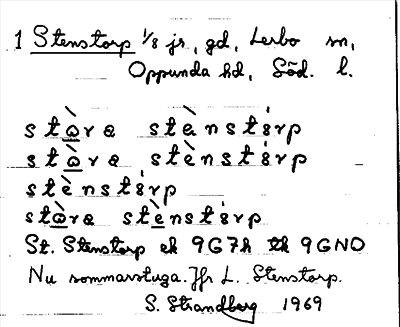 1 Stenstorp 1/8 jr, gd, Lerbo sn,
Oppunda hd, Söd. l.
stòra stènstórp
stòra stènstórp
stènstórp
stòra stènstórp
St. Stenstorp ek 9G7h tk 9GNO
Nu sommarstuga. Jfr L. Stenstorp.
S. Strandberg 1969